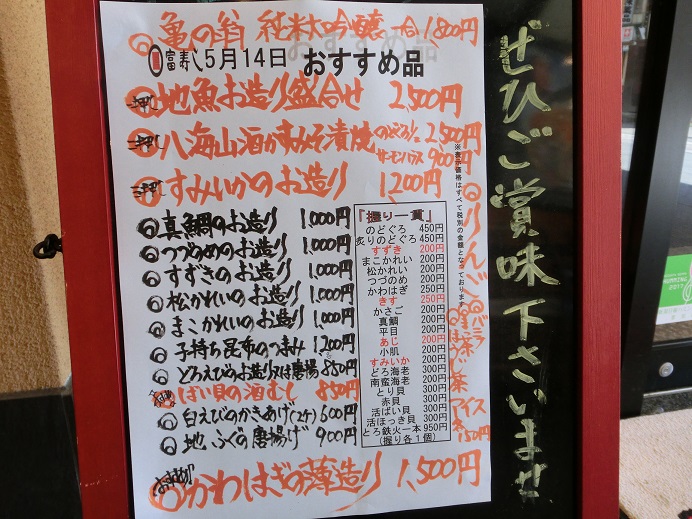 亀の翁 純米大吟醸 一合1,800円
富寿し5月14日 おすすめ品
一押し 地魚お造り盛合せ 2,500円
二押し 八海山酒かすみそ漬焼 のどぐろ 2,500円
サーモンハラス 900円
三押し すみいかのお造り 1,200円
真鯛のお造り 1,000円
つづのめのお造り 1,000円
すずきのお造り 1,000円
松かれいのお造り 1,000円
まこかれいのお造り 1,000円
子持ち昆布のつまみ 1,200円
どろえびのお造り又は唐揚 850円
ばい貝の酒むし 850円
白えびのかきあげ(2ケ) 600円
地ふぐの唐揚げ 900円
おすすめ!! かわはぎの薄造り 1,500円
「握り一貫」
のどぐろ 450円
炙りのどぐろ 450円
すずき 200円
まこかれい 200円
松かれい 200円
つづのめ 200円
かわはぎ 250円
きす 250円
かさご 200円
真鯛 200円
平目 200円
あじ 200円
小肌 200円
すみいか 200円
どろ海老 300円
南蛮海老 300円
とり貝 300円
赤貝 300円
活ばい貝 300円
活ほっき貝 300円
とろ鉄火一本 950円
(握り各1個)
※表示価格はすべて税別の金額となっております
りんご
バニラ
ほうじ茶
アイス
各150円
ぜひご賞味下さいませ
2017